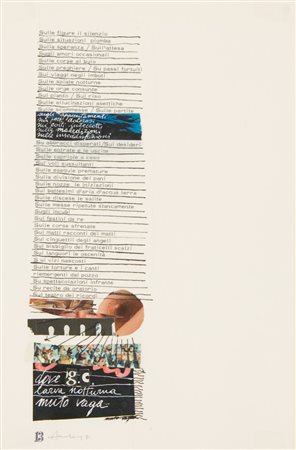 Sulle figure il silenzio
Sulle situazioni piomba
Sulla speranza / Sull'attesa
Sugli amori occasionali
Sulle corse al buio
Sulle preghiere / Su passi fortuiti
Sui viaggi negli imbuti
Sulle spiate notturne
Sulle orge consunte
Sul pianto / Sul riso
Sulle allucinazioni asettiche
Sulle scommesse / Sulle partite
sugli appuntamenti
sulle maledizioni
Su abbracci disperati/Sui desideri
Sulle entrate e le uscite
Sulle capriole a caso
Sui voli sussultanti
Sulle esequie premature
Sulla divisione dei pani
Sulle nozze le iniziazioni
Sui battesimi d'aria d'acqua terra
Sulle discese le salite
Sulle messe ripetute stancamente
Sugli incubi
Sui festini da re
Sulle corse sfrenate
Sui matti racconti dei matti
Sui cinguettii degli angeli
Sul bisbiglio dei fraticelli scalzi
Sui languori le oscenità
S ui vizi nascosti
Sulle torture e i canti
riemergenti dal pozzo
Su spettacolazioni infrante
Su recite da oratorio
Sul teatro dei ricordi
dove g.c.
larva notturna
muto vaga